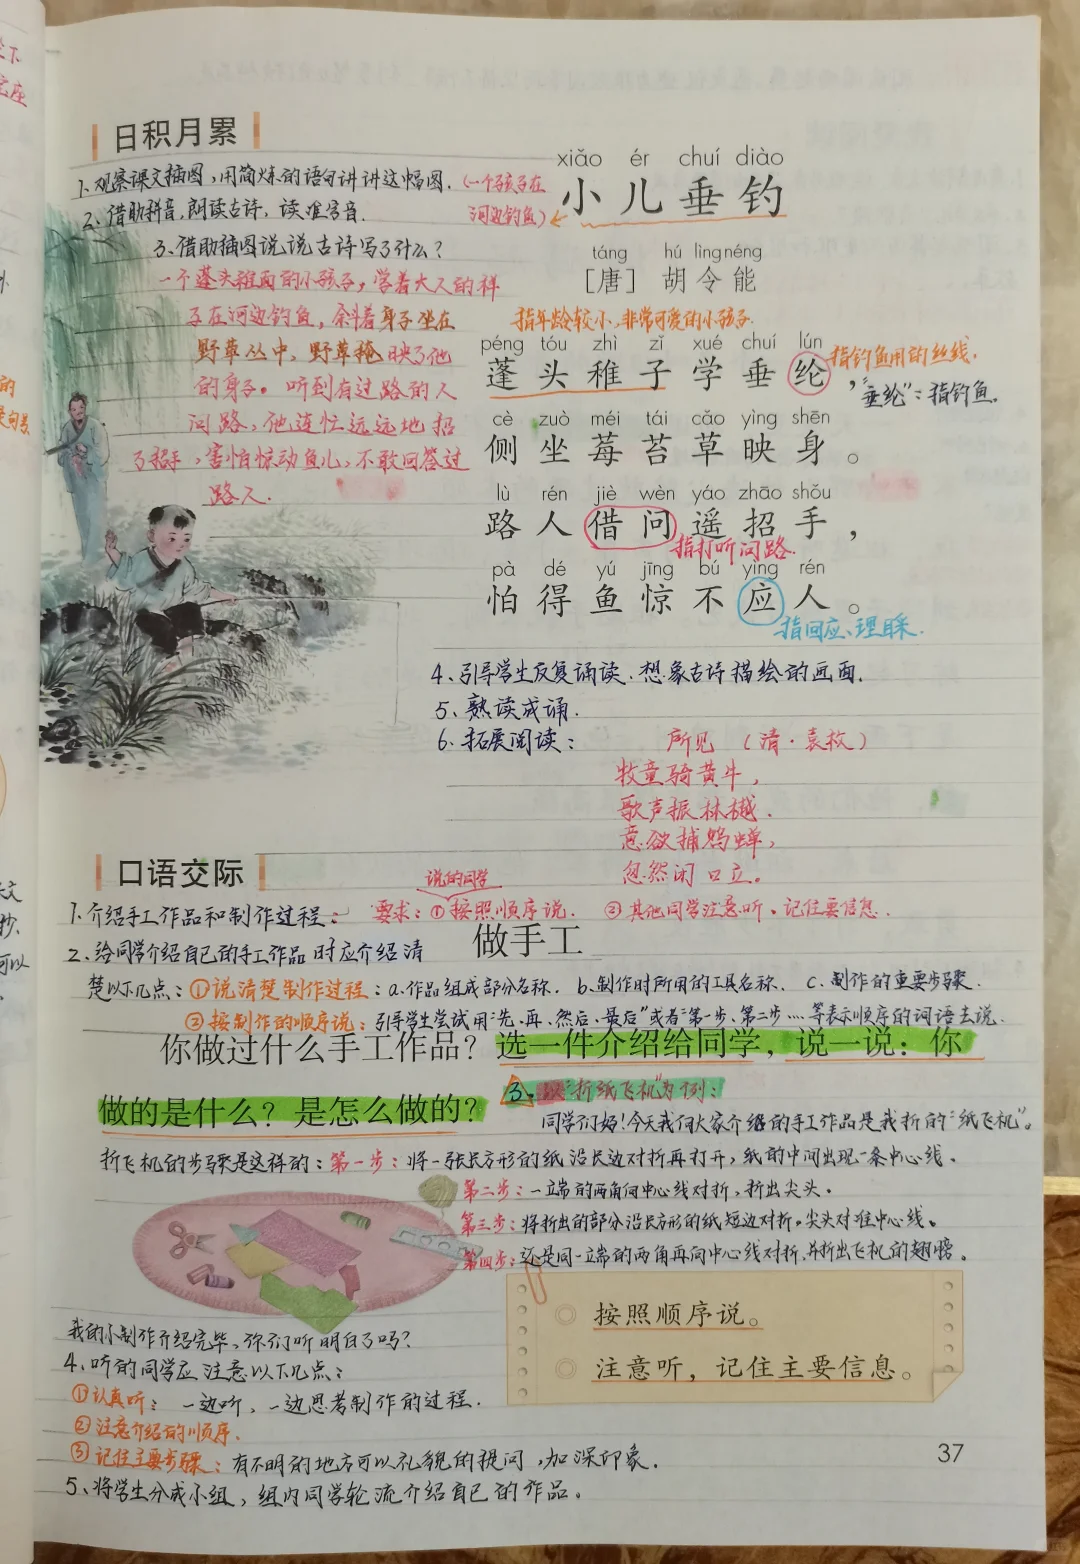 日积月累
1、观察课文插图，用简炼的语句讲讲这幅图.
（一个孩子在
河边钓鱼）
2、借助拼音，朗读古诗，读准字音.
3、借助插图说说古诗写了什么？
一个蓬头稚面的小孩子，学着大人的样
子在河边钓鱼，斜着身子坐在
野草丛中，野草掩映了他
的身子。听到有过路的人
问路，他连忙远远地招
了招手，害怕惊动鱼儿，不敢回答过
路人.
xiǎo ér chuí diào
小儿垂钓
táng hú lìng néng
［唐］胡令能
指年龄较小，非常可爱的小孩子.
péng tóu zhì zǐ xué chuí lún
蓬头稚子学垂纶，
指钓鱼用的丝线.
"垂纶"：指钓鱼.
cè zuò méi tái cǎo yìng shēn
侧坐莓苔草映身。
lù rén jiè wèn yáo zhāo shǒu
路人借问遥招手，
指打听问路.
pà dé yú jīng bú yìng rén
怕得鱼惊不应人。
指回应、理睬.
4、引导学生反复诵读.想象古诗描绘的画面.
5、熟读成诵.
6、拓展阅读：
所见（清·袁枚）
牧童骑黄牛，
歌声振林樾.
意欲捕鸣蝉，
忽然闭口立。
口语交际
说的同学
1、介绍手工作品和制作过程：要求：①按照顺序说. ②其他同学注意听、记住要信息.
做手工
2、给同学介绍自己的手工作品时应介绍清
楚以下几点：①说清楚制作过程：a.作品组成部分名称. b.制作时所用的工具名称. c.制作的重要步骤.
②按制作的顺序说：引导学生尝试用"先、再、然后、最后"或者"第一步、第二步……等表示顺序的词语去说.
你做过什么手工作品？选一件介绍给同学，说一说：你
做的是什么？是怎么做的？
3、以"折纸飞机"为例：
同学们好！今天我们大家介绍的手工作品是我折的"纸飞机"。
折飞机的步骤是这样的：第一步：将一张长方形的纸沿长边对折再打开，纸的中间出现一条中心线.
第二步：一端的两角向中心线对折，折出尖头.
第三步：将折出的部分沿长方形的纸短边对折。尖头对准中心线。
第四步：还是同一端的两角再向中心线对折，并折出飞机的翅膀。
按照顺序说。
注意听，记住主要信息。
我的小制作介绍完毕，你们听明白了吗？
4、听的同学应注意以下几点：
①认真听：一边听，一边思考制作的过程.
②注意介绍的顺序.
③记住主要步骤：有不明的地方可以礼貌的提问，加深印象.
5、将学生分成小组，组内同学轮流介绍自己的作品。
37